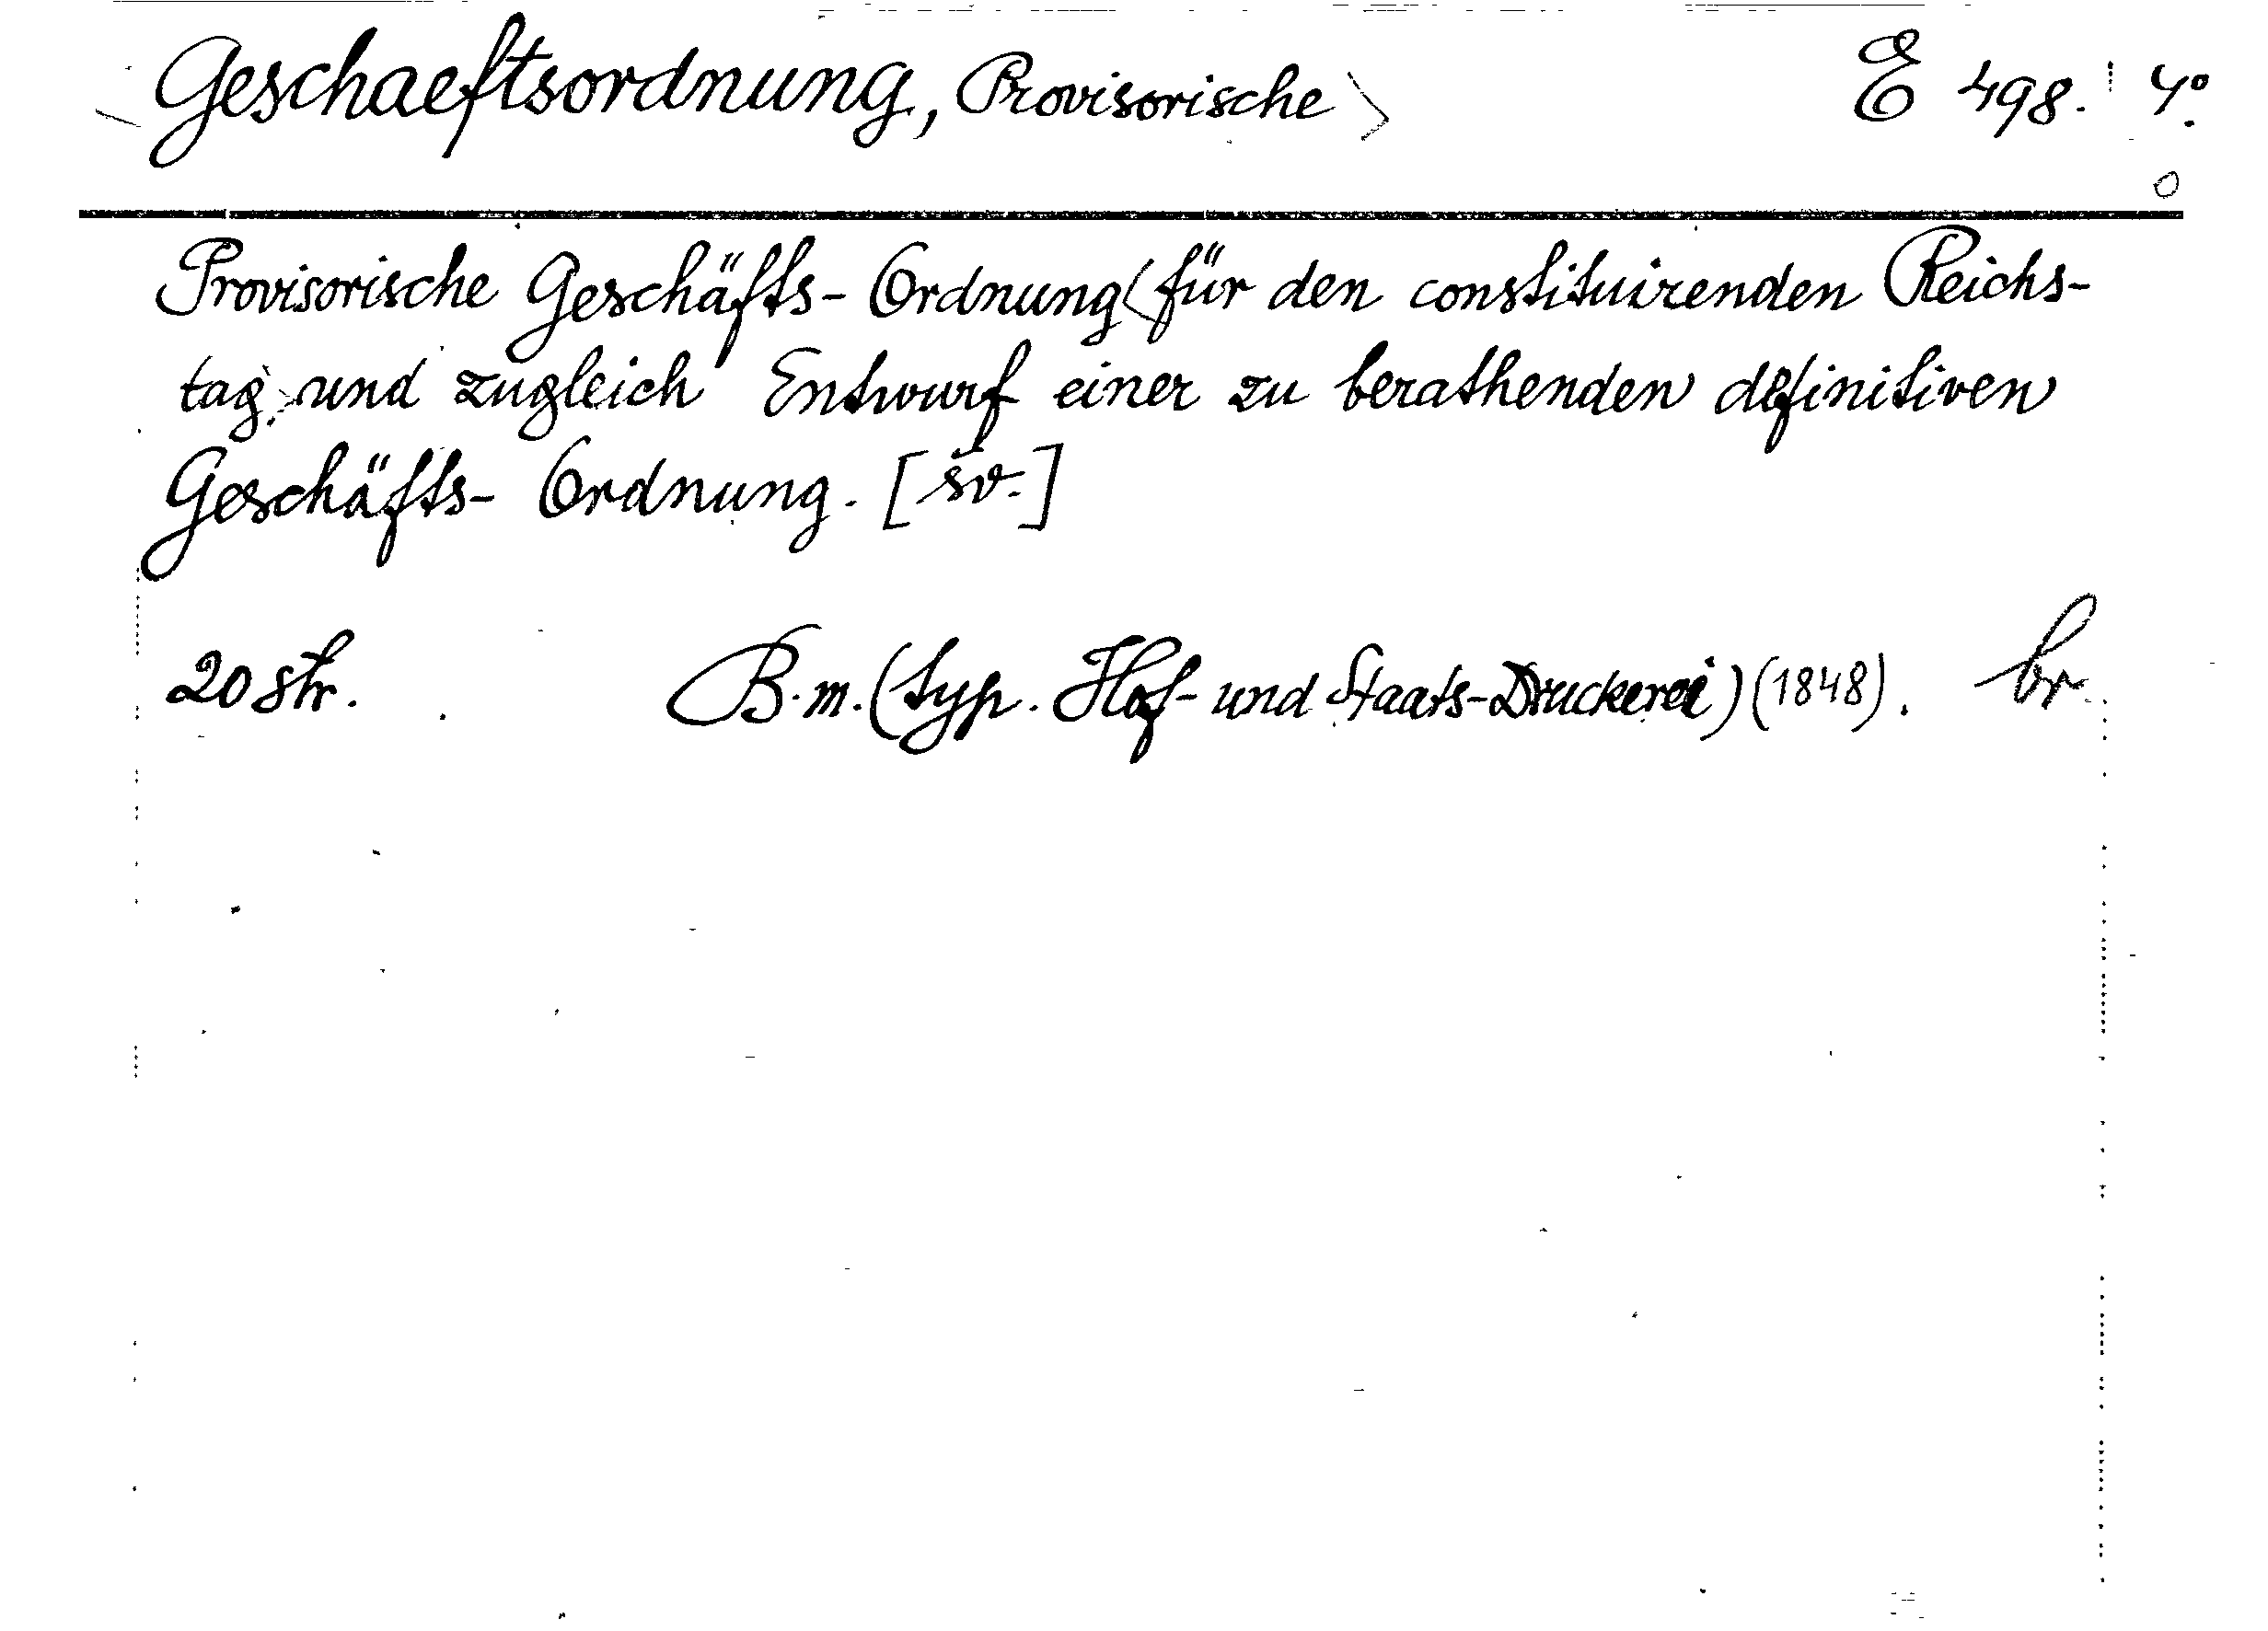 Geschaeftsordnung, Provisorische E 498. 4°.
Provisorische Geschäfts-Ordnung für den constituirenden Reichs-
tag und zugleich Entwurf einer zu berathenden definitiven
Geschäfts-Ordnung. [šv.]
20 str. B. m. (typ. Hof- und Staats-Druckerei) (1848). br.